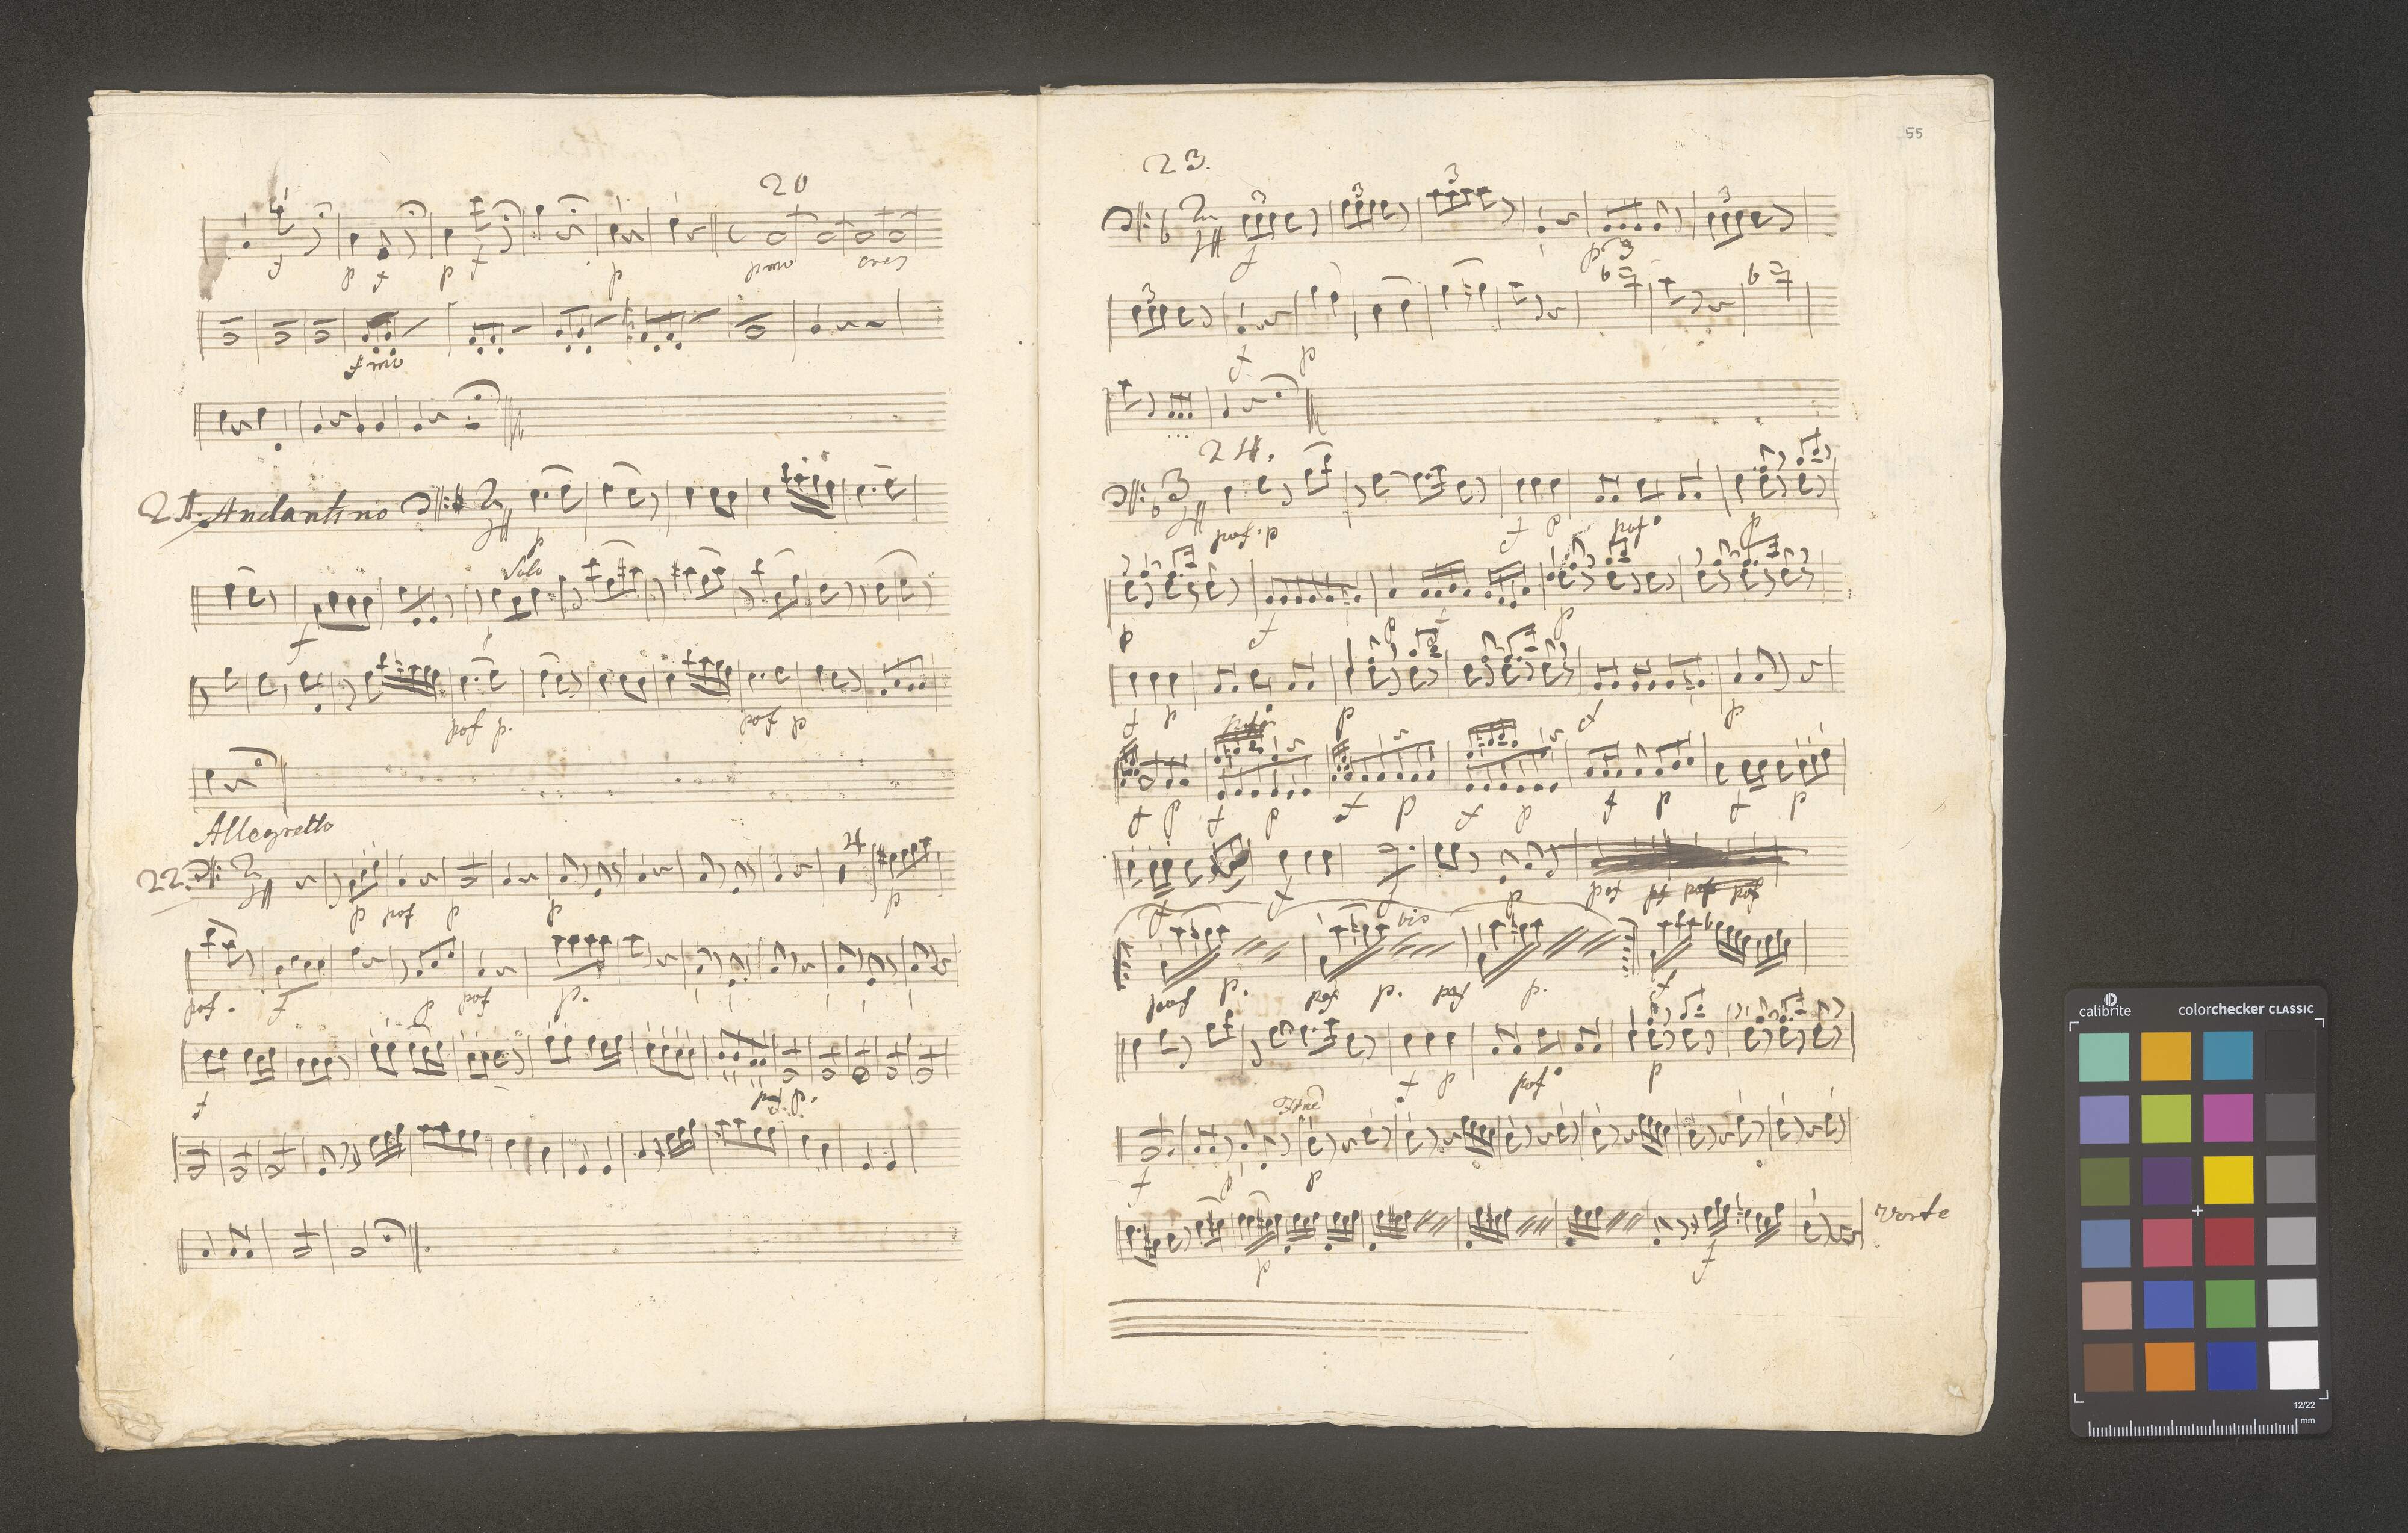 20
f p f p f p pmo cres
fmo
21. Andantino
p
Solo
f
pof p. pof p
Allegretto
22.
2 4
p pof p p 4 p
pof. f p pof p.
f pof p.
55
23.
3 3 3 3
2 4 f p 3
3
f p
24.
3 4 pof. p f p pof p
p f p f p
f p pof p f p
f p f p f p f p f p f p
f f f p pof pf pof pof
bis
pof p. pof p. pof p. f
f p pof p
Fine
f p p
Vorte
p f
calibrite colorchecker CLASSIC
12/22
mm